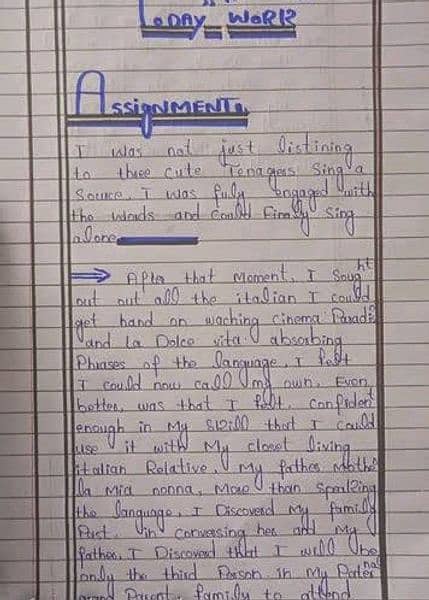 Today work
Assignment
I was not just listining
to three cute Tenagers Sing a
Source. I was fully engaged with
the words and could Finally Sing
alone
After that moment, I Sought
out out all the italian I could
get hand on waching cinema Paradi
and La Dolce vita absorbing
Phrases of the language, I felt
I could now call my own. Even
better, was that I felt confident
enough in My Skill that I could
use it with My closet living
italian Relative, My father Moth
La Mia nonna, More than Speaking
the language, I Discoverd My family
Past, in conversing her and My
father, I Discoverd that I will be
only the third Person in My Paternal
grand Parent family to attend